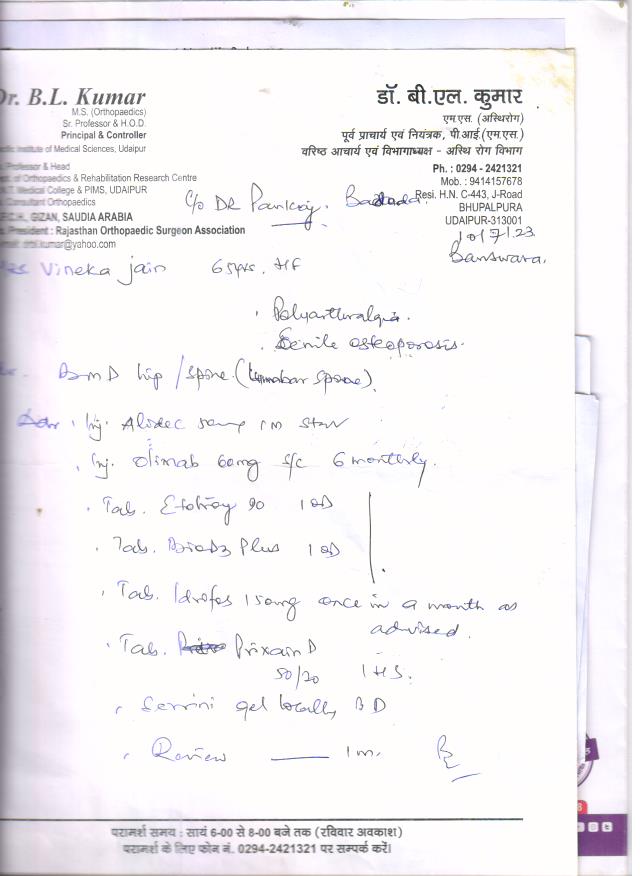 Dr. B.L. Kumar
M.S. (Orthopaedics)
Sr. Professor & H.O.D.
Principal & Controller
Institute of Medical Sciences, Udaipur
Professor & Head
of Orthopaedics & Rehabilitation Research Centre
Medical College & PIMS, UDAIPUR
Consultant Orthopaedics
GIZAN, SAUDIA ARABIA
President : Rajasthan Orthopaedic Surgeon Association
kumar@yahoo.com
डॉ. बी.एल. कुमार
एम.एस. (अस्थिरोग)
पूर्व प्राचार्य एवं नियंत्रक, पी.आई.(एम.एस.)
वरिष्ठ आचार्य एवं विभागाध्यक्ष - अस्थि रोग विभाग
Ph. : 0294 - 2421321
Mob. : 9414157678
Resi. H.N. C-443, J-Road
BHUPALPURA
UDAIPUR-313001
C/o DR Pankaj
10/7/23
Banswara.
Vineka Jain 65yrs.
Polyarthralgia.
Senile osteoporosis.
BMD hip / Spine. (Lumbar Spine).
Adv. Inj. 1m Stat
Inj. Olimab 60mg S/c 6 monthly.
Tab. 90 1 OD
Tab. Plus 1 OD
Tab. Idrofos 150mg once in a month as
advised.
Tab. Prixain D
50/20 1 HS.
gel locally BD
Review 1m.
परामर्श समय : सायं 6-00 से 8-00 बजे तक (रविवार अवकाश)
परामर्श के लिए फोन नं. 0294-2421321 पर सम्पर्क करें।